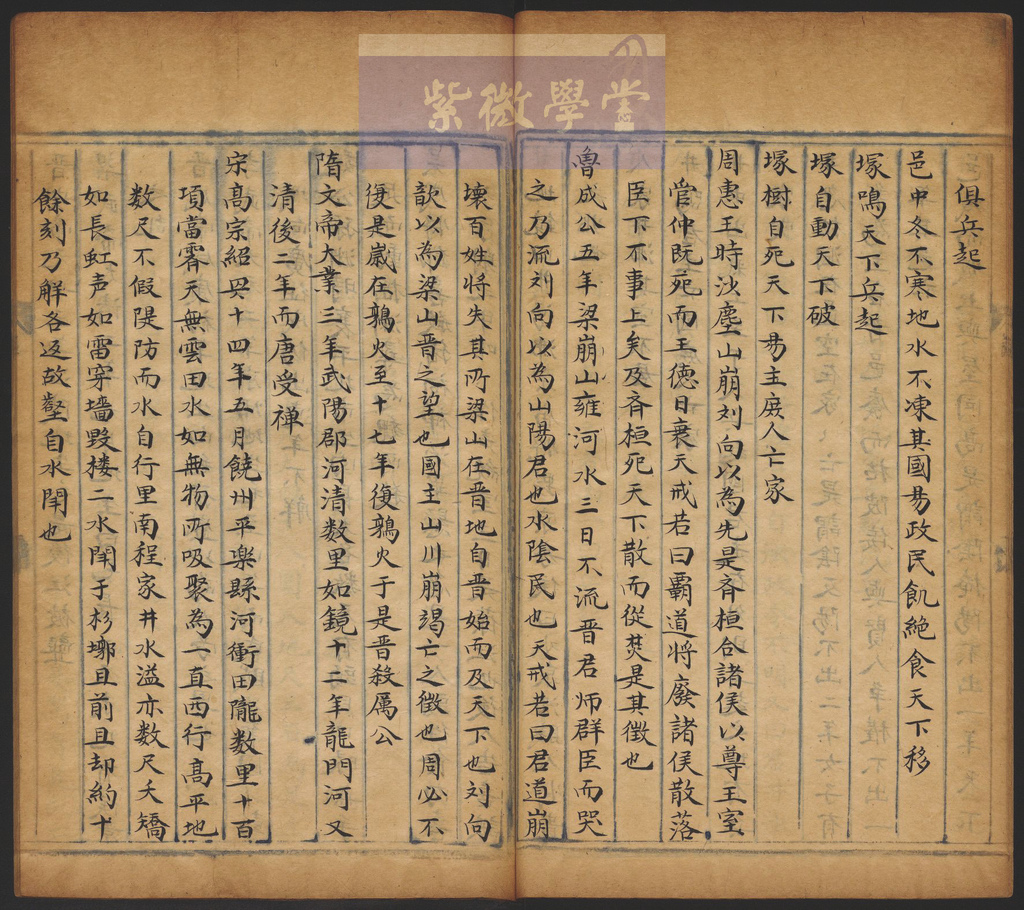 紫微學堂
俱兵起
邑中冬不寒地水不凍其國易政民飢絕食天下移
塚鳴天下兵起
塚自動天下破
塚樹自死天下易主庻人亡家
周惠王時沙塵山崩刘向以為先是斉桓合諸侯以尊王室
管仲既死而王徳日衰天戒若曰覇道將廢諸侯散落
臣下不事上矣及斉桓死天下散而從楚是其徴也
魯成公五年梁崩山雍河水三日不流晋君师群臣而哭
之乃流刘向以為山陽君也水陰民也天戒若曰君道崩
壊百姓将失其所梁山在晋地自晋始而及天下也刘向
歆以為梁山晋之望也國主山川崩竭亡之徴也周必不
復是嵗在鶉火至十七年復鶉火于是晋殺厲公
隋文帝大業三年武陽郡河清数里如鏡十二年龍門河又
清後二年而唐受禅
宋高宗紹興十四年五月饒州平楽縣河衝田隴数里十百
項當霽天無雲田水如無物所吸聚為一直西行髙平地
数尺不假隄防而水自行里南程家井水溢亦数尺夭矯
如長虹声如雷穿墻毀楼二水閗于杉墎且前且却約十
餘刻乃觧各返故壑自水閗也